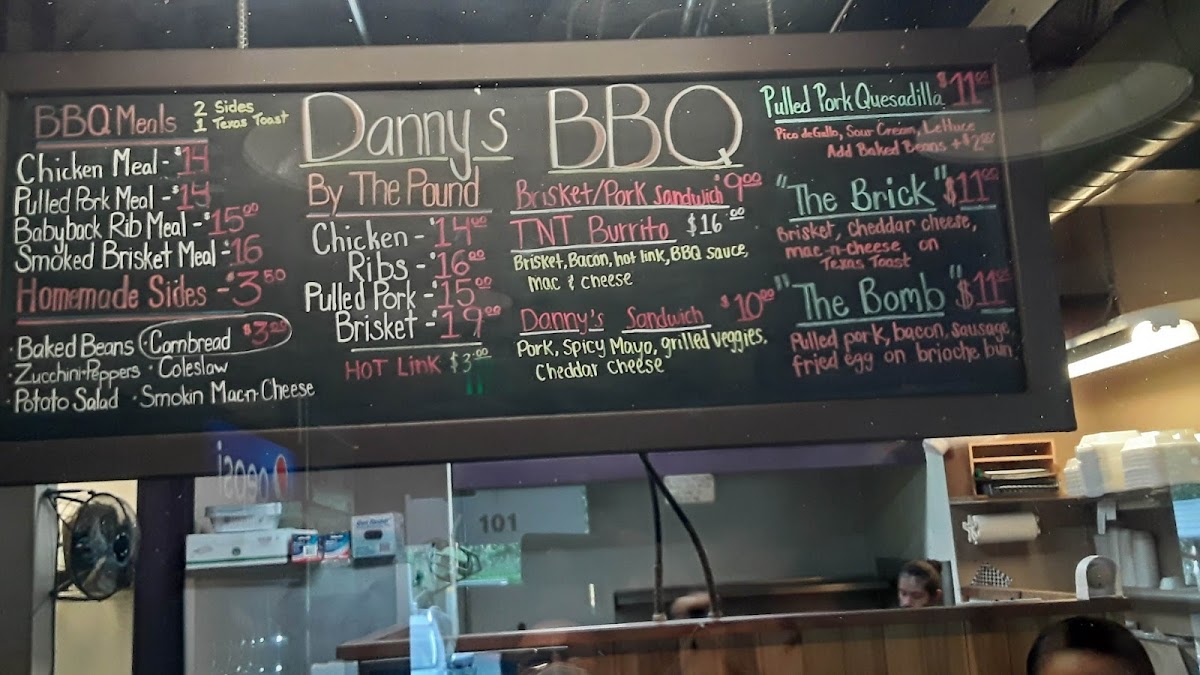 BBQ Meals
2 Sides
1 Texas Toast
Chicken Meal - $14
Pulled Pork Meal - $14
Babyback Rib Meal - $15.00
Smoked Brisket Meal - $16
Homemade Sides - $3.50
· Baked Beans
Cornbread $3.00
· Zucchini-Peppers · Coleslaw
· Potato Salad · Smokin Mac-n-Cheese
Danny's BBQ
By The Pound
Chicken - $14.00
Ribs - $16.00
Pulled Pork - $15.00
Brisket - $19.00
HOT LINK $3.00
Brisket/Pork Sandwich $9.00
TNT Burrito $16.00
Brisket, Bacon, hot link, BBQ sauce,
Mac & cheese
Danny's Sandwich $10.00
Pork, Spicy Mayo, grilled veggies.
Cheddar cheese
Pulled Pork Quesadilla $11.00
Pico de Gallo, Sour Cream, Lettuce
Add Baked Beans + $2.00
"The Brick" $11.00
Brisket, Cheddar cheese,
mac-n-cheese on
Texas Toast
"The Bomb" $11.00
Pulled pork, bacon, sausage,
fried egg on brioche bun.
pepsi
101